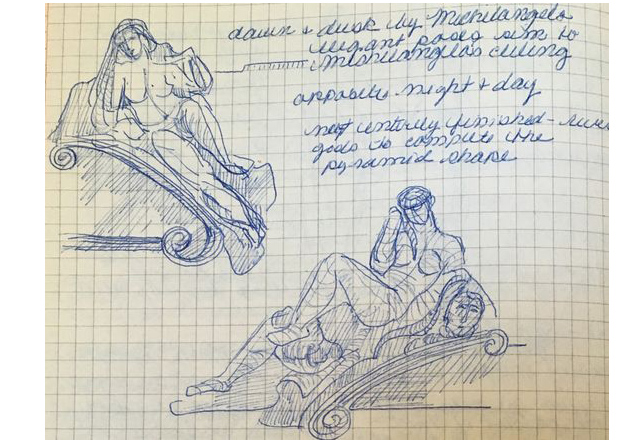 dawn + dusk by Michelangelo
elegant poses sim to
Michelangelos ceiling
opposite - night + day
not entirely finished - river
gods to complete the
pyramid shape